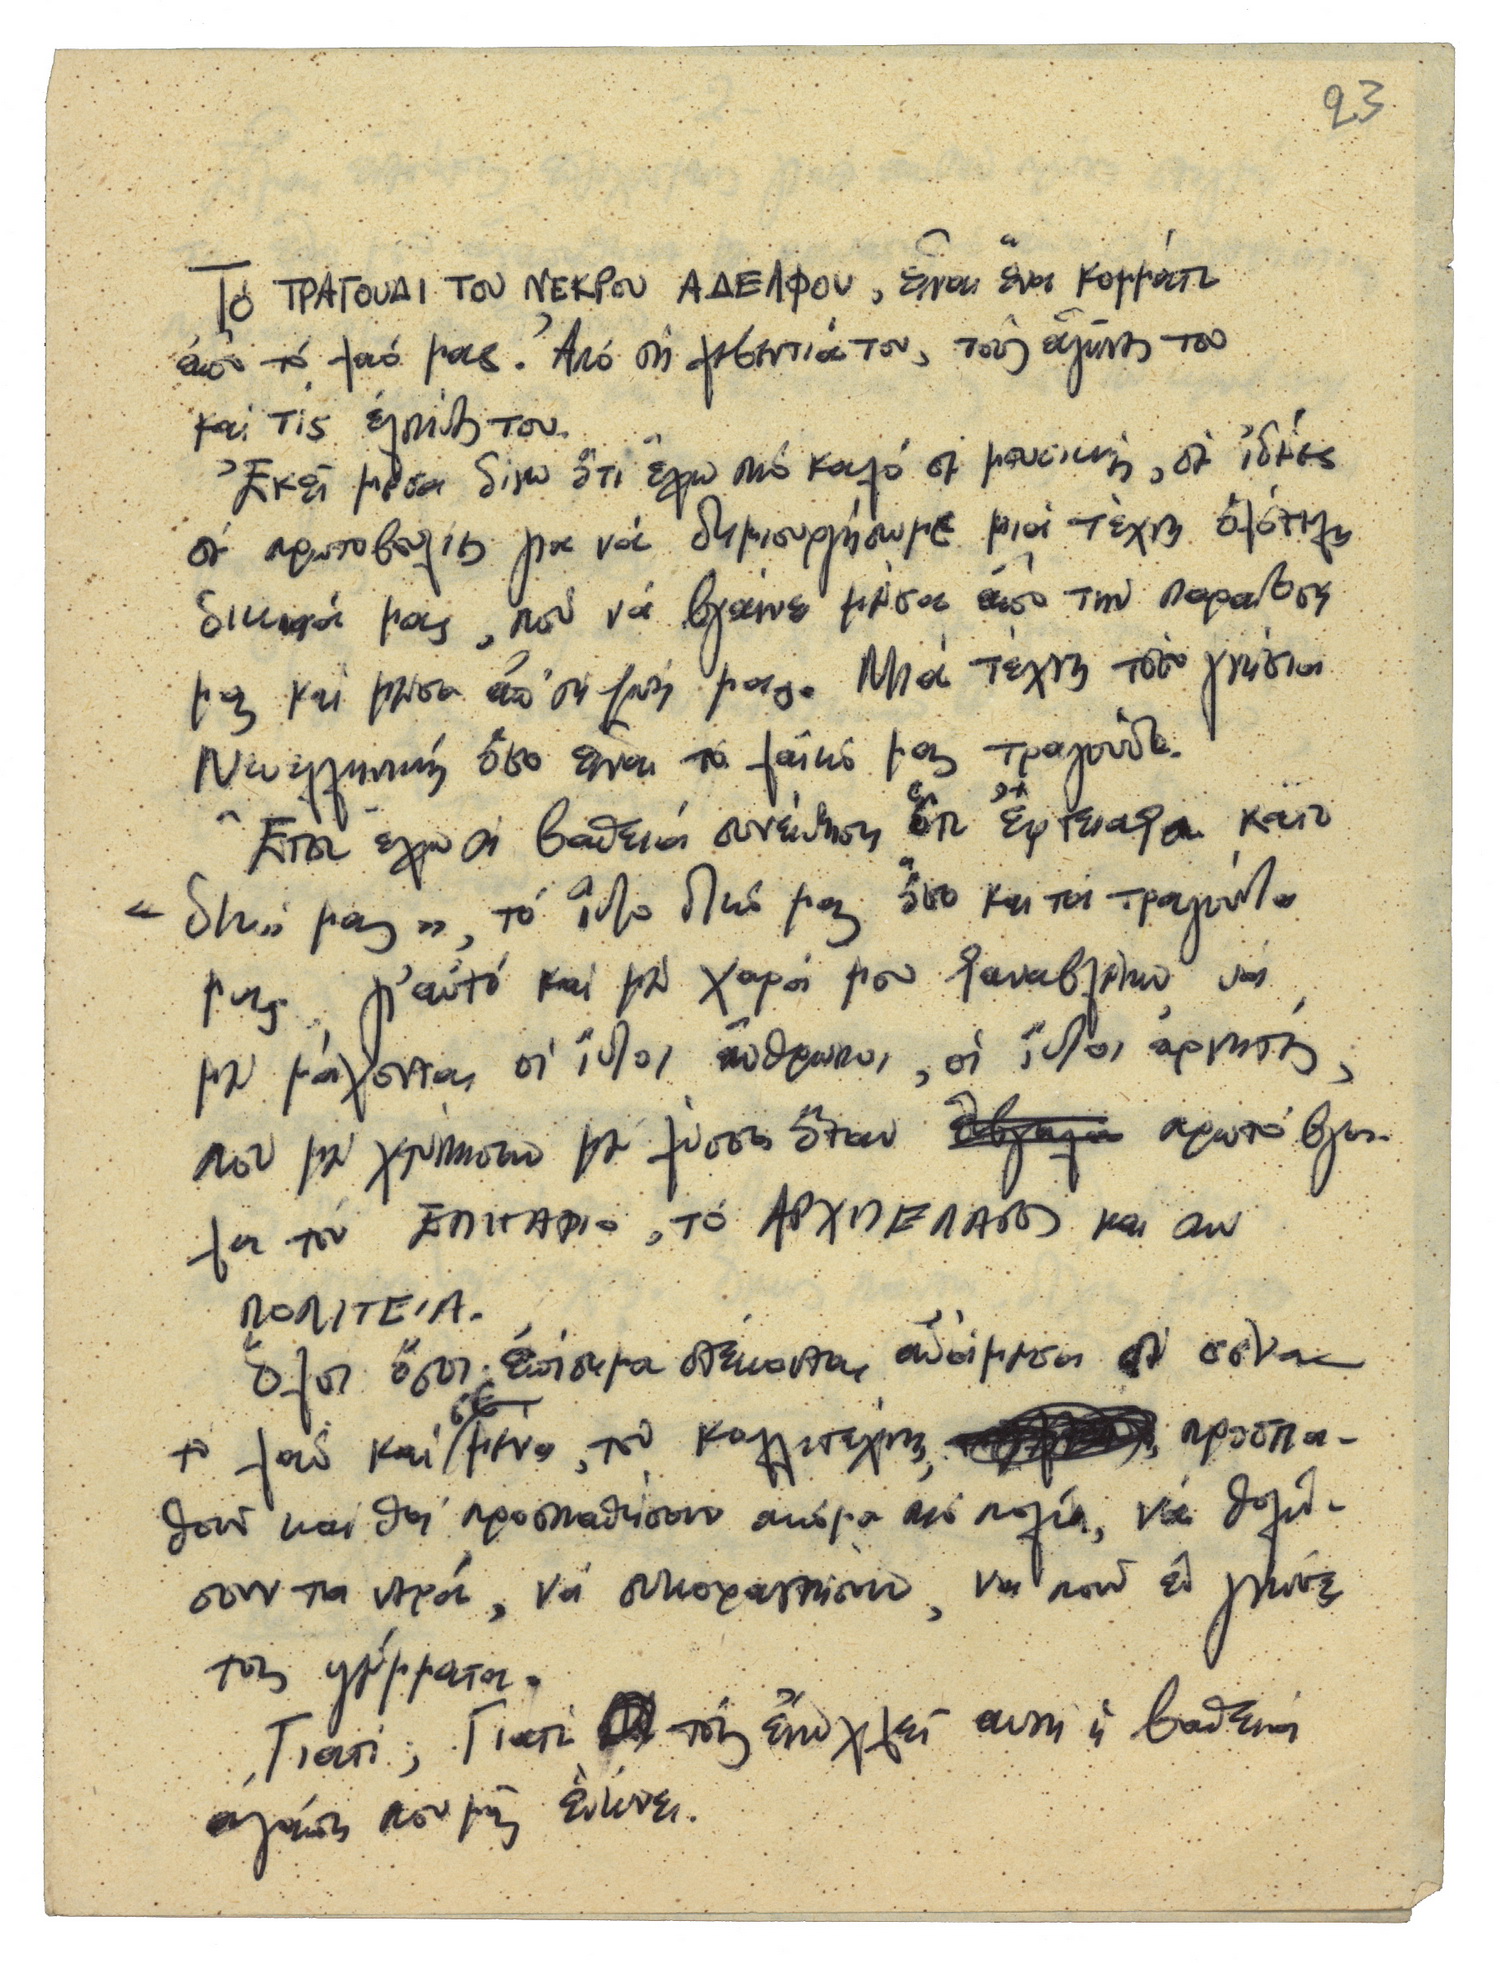 23
Τό ΤΡΑΓΟΥΔΙ ΤΟΥ ΝΕΚΡΟΥ ΑΔΕΛΦΟΥ, εἶναι ἕνα κομμάτι
ἀπό τό λαό μας. Ἀπό τή λεβεντιά του, τούς ἀγῶνες του
καί τίς ἐλπίδες του.
Ἐκεῖ μέσα δίνω ὅτι ἔχω πιό καλό σέ μουσική, σέ ἰδέες
σέ πρωτοβουλίες για νά δημιουργήσωμε μιά τέχνη ὁλότελα
δικιά μας, πού νά βγαίνει μέσα ἀπό την παράδοση
μας καί μέσα ἀπ' τή ζωή μας. Μιά τέχνη τόσο γνήσια
Νεοελληνική ὅσο εἶναι τό λαϊκό μας τραγούδι.
Ἔτσι ἔχω τή βαθειά συνείδηση ὅτι ἔφτειαξα κάτι
«δικό μας», τό ἴδιο δικό μας ὅσο και τά τραγούδια
μας. Γι' αὐτό καί μέ χαρά μου ξαναβλέπω νά
μέ μάχονται οἱ ἴδιοι ἄνθρωποι, οἱ ἴδιοι ἀρνητές,
που μέ χτύπησαν μέ λύσσα ὅταν ἔβγαλα πρωτόβγα-
λα τόν ΕΠΙΤΑΦΙΟ, τό ΑΡΧΙΠΕΛΑΓΟΣ και την
ΠΟΛΙΤΕΙΑ.
Ὅλοι ὅσοι ἐπίσημα στέκονται ἀνάμεσα σέ σένα
το λαό καί σε μένα, τόν καλλιτέχνη, προσπα-
θοῦν και θά προσπαθήσουν ακόμα πιό πολύ, νά θολώ-
σουν τα νερά, νά συκοφαντήσουν, να ποῦν ἐν γνώσει
τους ψέμματα.
Γιατί; Γιατί τούς ἐνοχλεῖ αυτή ἡ βαθειά
αγάπη που μᾶς ἑνώνει.